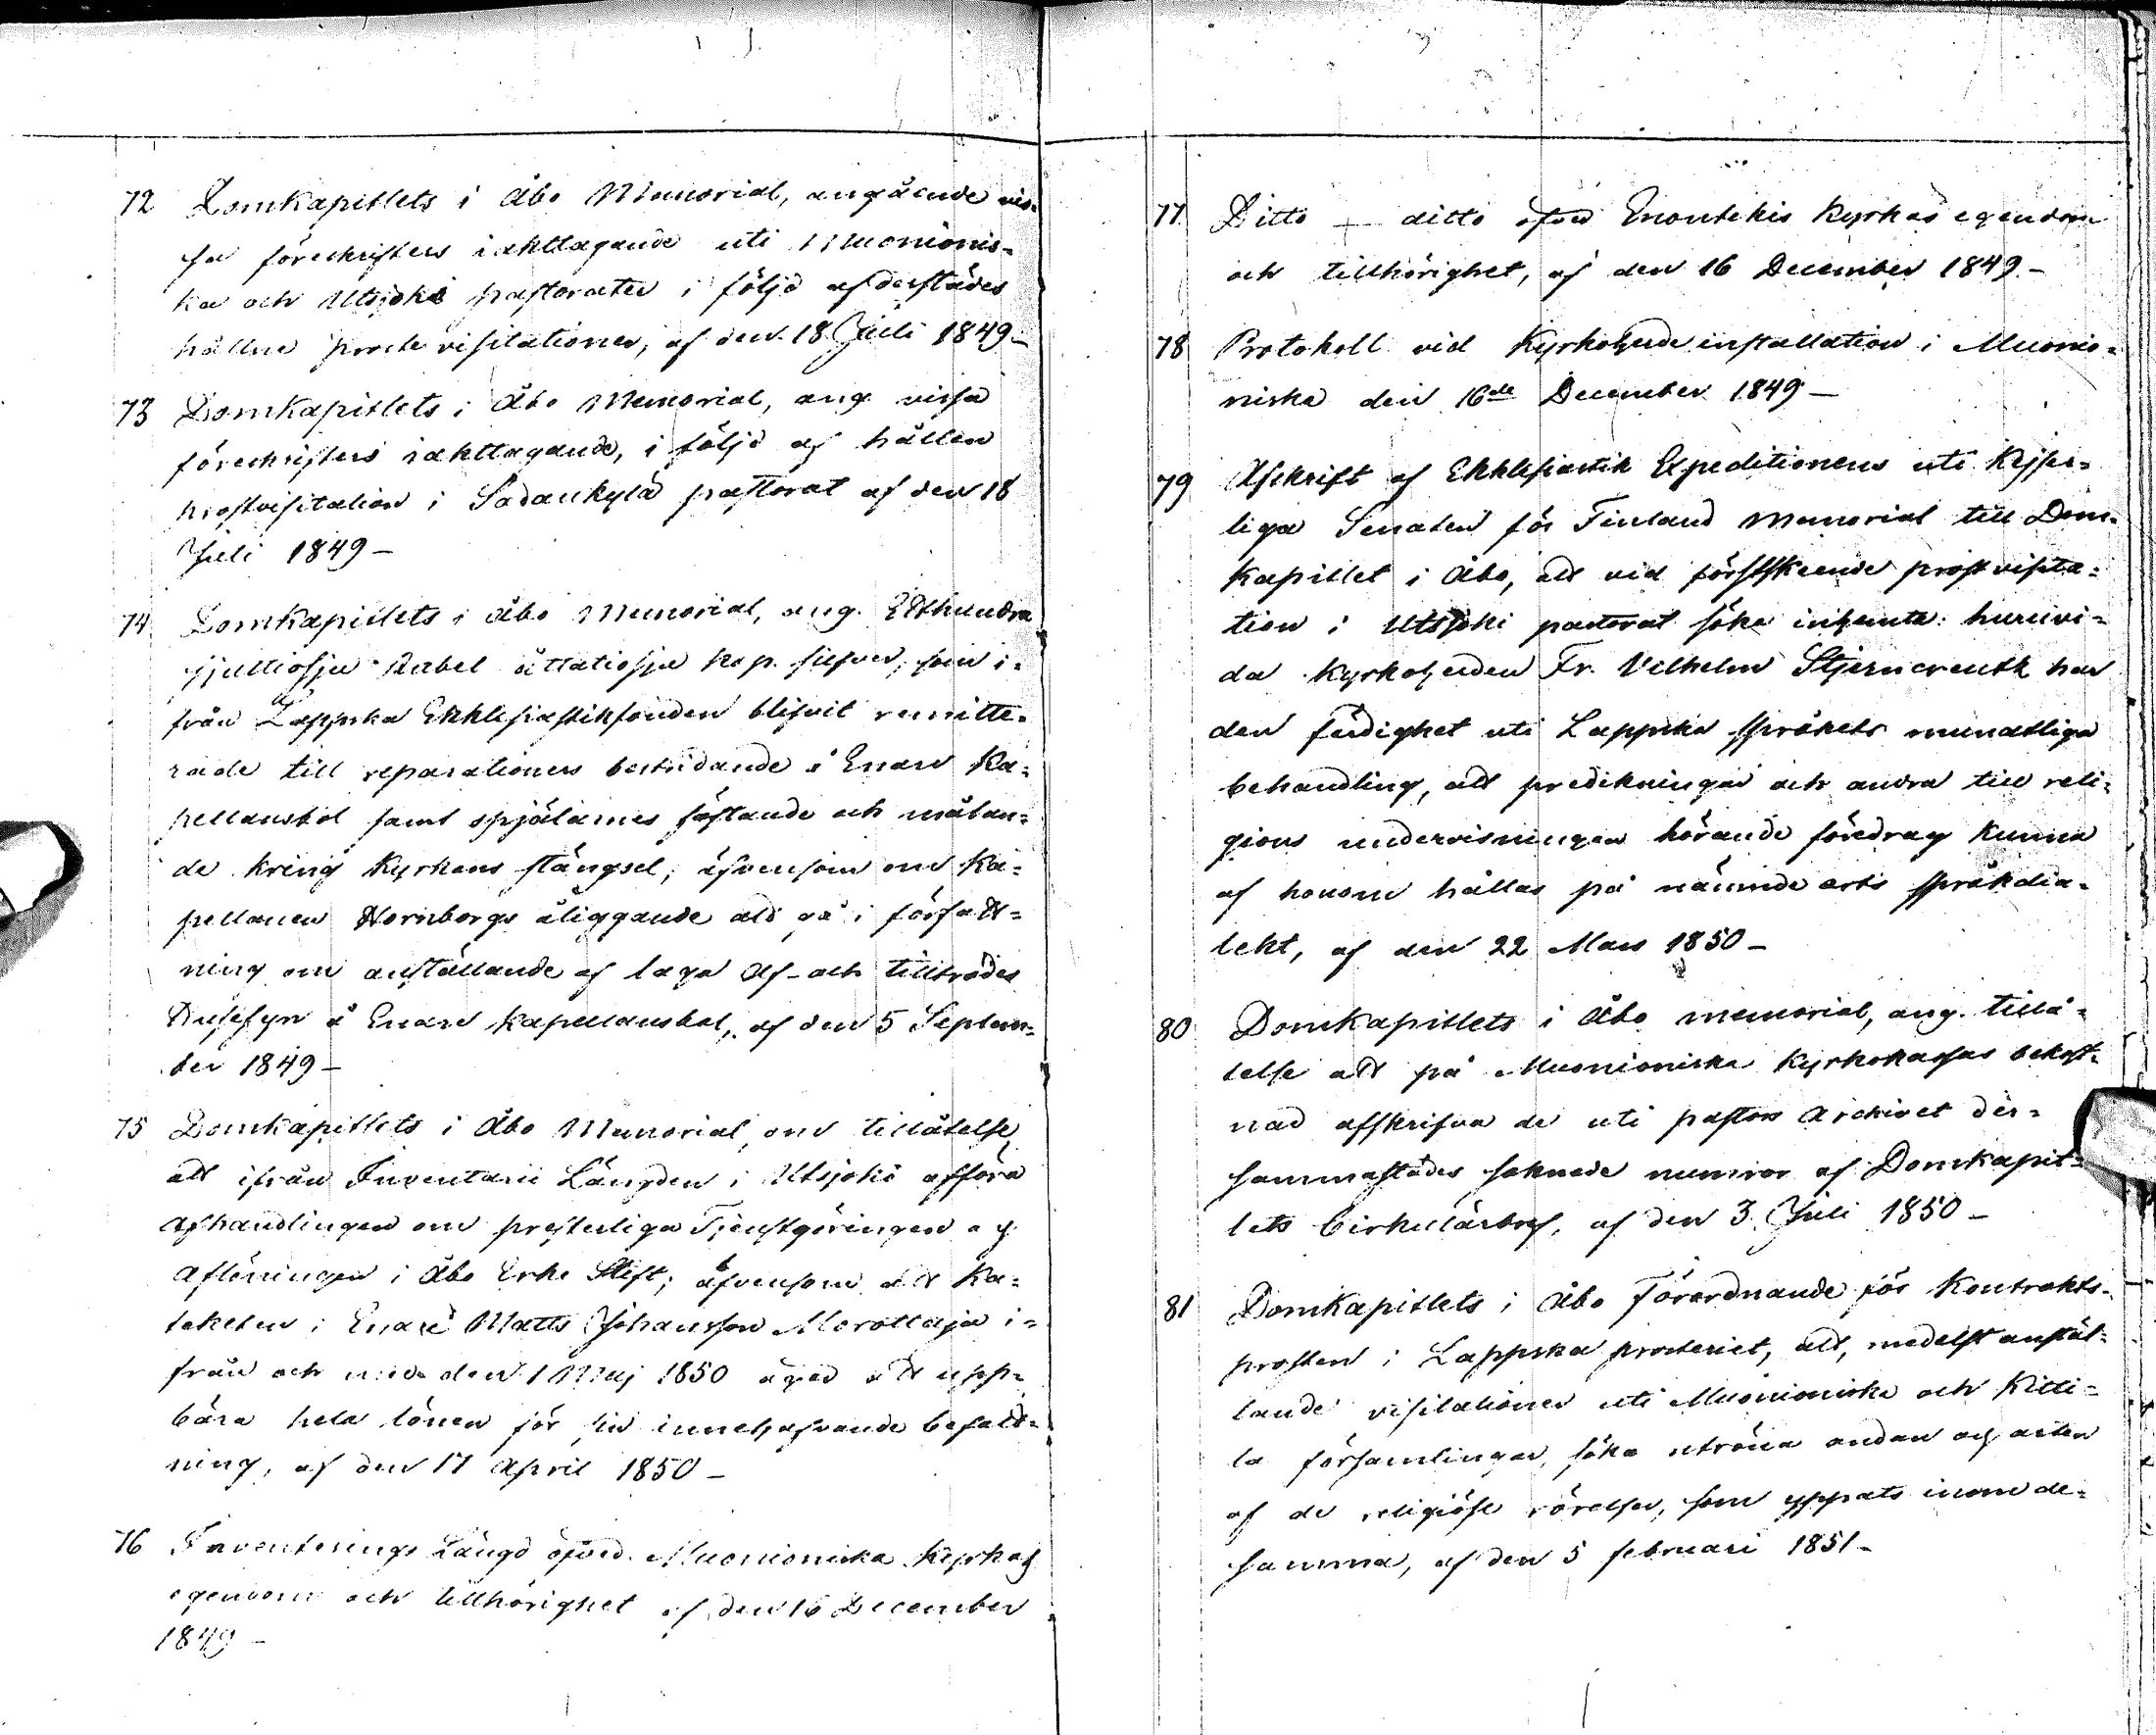 72 Domkapitlets i Åbo Memorial, angående vis-
sa föreskrifters iakttagande uti Muonionis-
ka och Utsjoki pastorater i följd af derstädes
hållne proste visitationer, af den 18 Juli 1849 –
73 Domkapitlets i Åbo Memorial, ang. vissa
föreskrifters iakttagande, i följd af hållen
prostvisitation i Sodankylä pastorat af den 18
Juli 1849 –
74 Domkapitlets i Åbo Memorial, ang. Etthundra
sjuttiosju Rubel åttatiosju kop. silfver, som i-
från Lappska Ekklesiastikfonden blifvit remitte-
rade till reparationers bestridande å Enare Ka-
pellansbol samt spjälarnes fästande och målan-
de kring Kyrkans stängsel; äfvensom om Ka-
pellanen Hornborgs åliggande att gå i författ-
ning om anställande af laga Af- och tillträdes
Husesyn å Enare Kapellansbol, af den 5 Septem-
ber 1849 –
75 Domkapitlets i Åbo Memorial om tillåtelse
att ifrån Inventarii Längden i Utsjoki afföra
Afhandlingen om presterliga Tjenstgöringen och
Aflöningen i Åbo Erke Stift; äfvensom att Ka-
teketen i Enare Matts Johansson Morottaja i-
från och med den 1 Maj 1850 äger att upp-
bära hela lönen för sin innehafvande befatt-
ning, af den 17 April 1850 –
76 Inventerings Längd öfver Muonioniska Kyrkas
egendom och tillhörighet af den 16 December
1849 –
77 Ditto – ditto öfver Enontekis Kyrkas egendom
och tillhörighet, af den 16 December 1849 –
78 Protokoll vid Kyrkoherde installation i Muonio-
niska den 16de December 1849 –
79 Afskrift af Ekklesiastik Expeditionens uti Kejser-
liga Senaten för Finland Memorial till Dom-
kapitlet i Åbo, att vid förstskeende prostvisita-
tion i Utsjoki pastorat söka inhemta: huruvi-
da Kyrkoherden Fr. Vilhelm Stjerncreutz har
den färdighet uti Lappska språkets muntliga
behandling, att predikningar och andra till reli-
gions undervisningen hörande föredrag kunna
af honom hållas på nämnde orts språkdia-
lekt, af den 22 Mars 1850 –
80 Domkapitlets i Åbo memorial, ang. tillå-
telse att på Muonioniska Kyrkokassas bekost-
nad afskrifva de uti pastors Archivet der-
sammastädes saknade numror af Domkapit-
lets Cirkulärbref, af den 3 Juli 1850 –
81 Domkapitlets i Åbo Förordnande för Kontrakts-
prosten i Lappska prosteriet, att, medelst anstäl-
lande visitationer uti Muonioniska och Kitti-
la församlingar, söka utröna andan och arten
af de religiösa rörelser, som yppats inom de-
samma, af den 5 februari 1851 –